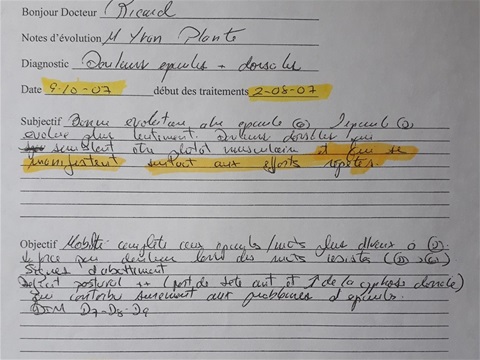 Bonjour Docteur Ricard
Notes d'évolution M Yvan Plante
Diagnostic Douleurs épaules + dorsales
Date 9-10-07 début des traitements 2-08-07
Subjectif Bonne évolution épaule (G) L'épaule (D)
évolue plus lentement. Douleurs dorsales qui
semblent être plutôt musculaire et qui se
manifestent surtout aux efforts répétés.
Objectif Mobilité complète épaules / plus à (D).
force douleur lors des résistés (D > G)
Signes d'abattement
Déficit postural ++ (port de tête ant et ↑ de la cyphose dorsale)
qui contribue sûrement aux problèmes d'épaules.
D7-D8-D9